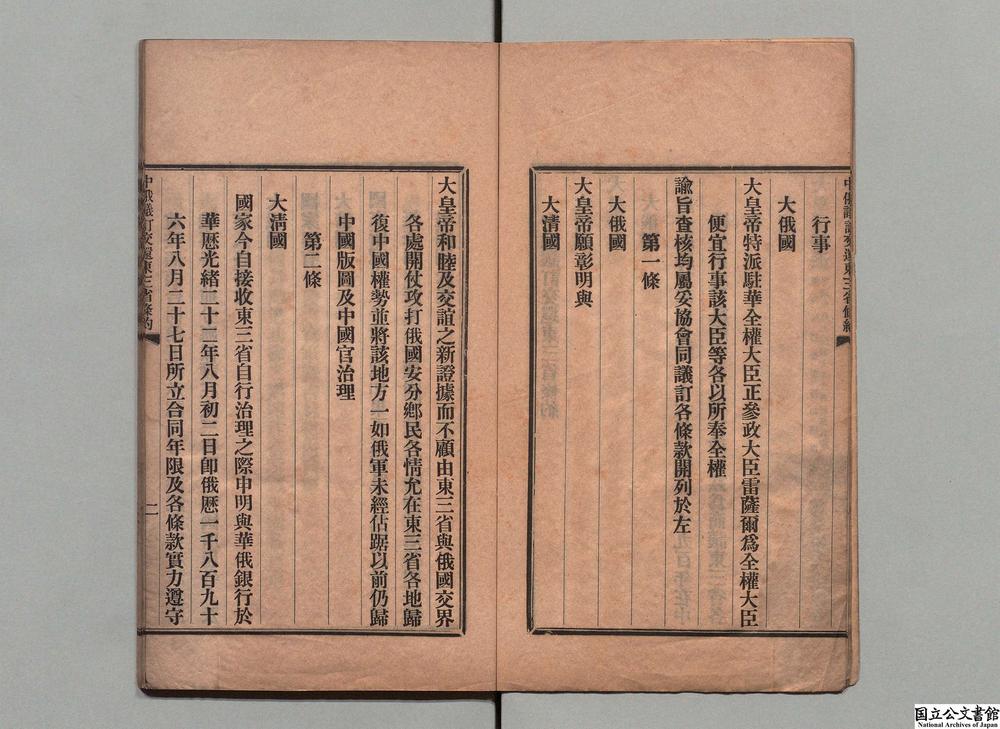 行事
大俄國
大皇帝特派駐華全權大臣正參政大臣雷薩爾爲全權大臣
便宜行事該大臣等各以所奉全權
諭旨查核均屬妥協會同議訂各條款開列於左
第一條
大俄國
大皇帝願彰明與
大清國
大皇帝和睦及交誼之新證據而不顧由東三省與俄國交界
各處開仗攻打俄國安分鄉民各情允在東三省各地歸
復中國權勢並將該地方一如俄軍未經佔踞以前仍歸
中國版圖及中國官治理
第二條
大清國
國家今自接收東三省自行治理之際申明與華俄銀行於
華歷光緒二十二年八月初二日卽俄歷一千八百九十
六年八月二十七日所立合同年限及各條款實力遵守
中俄議訂交還東三省條約
二
国立公文書館
National Archives of Japan